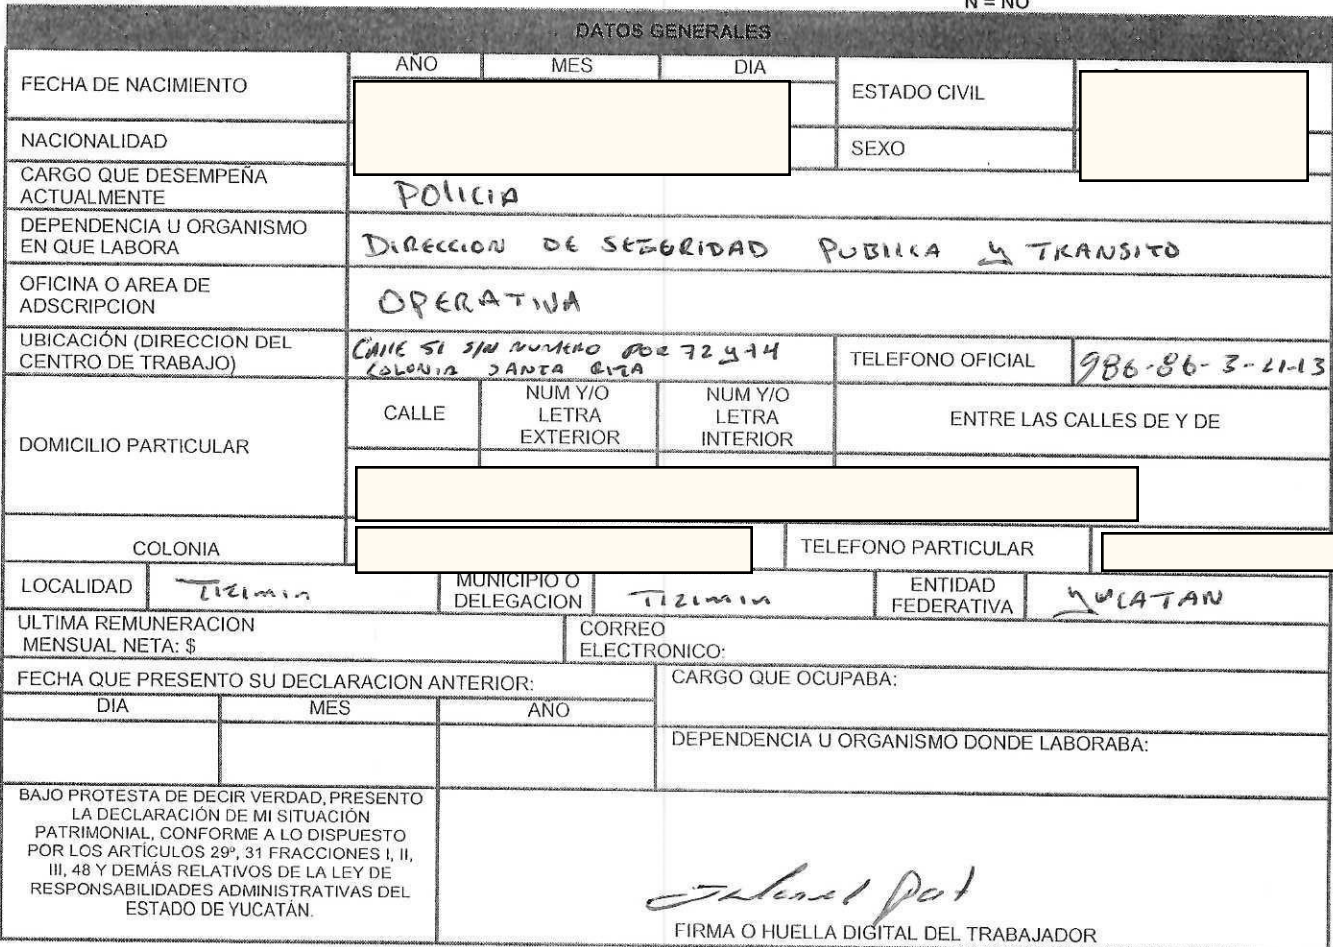 N = NO
DATOS GENERALES
FECHA DE NACIMIENTO
AÑO MES DIA
ESTADO CIVIL
NACIONALIDAD
SEXO
CARGO QUE DESEMPEÑA
ACTUALMENTE
POLICIA
DEPENDENCIA U ORGANISMO
EN QUE LABORA
DIRECCION DE SEGURIDAD PUBLICA Y TRANSITO
OFICINA O AREA DE
ADSCRIPCION
OPERATIVA
UBICACIÓN (DIRECCION DEL
CENTRO DE TRABAJO)
CALLE 51 S/N NUMERO POR 72 y 74
COLONIA SANTA RITA
TELEFONO OFICIAL
986-86-3-21-13
DOMICILIO PARTICULAR
CALLE
NUM Y/O
LETRA
EXTERIOR
NUM Y/O
LETRA
INTERIOR
ENTRE LAS CALLES DE Y DE
COLONIA
TELEFONO PARTICULAR
LOCALIDAD
Tizimin
MUNICIPIO O
DELEGACION
Tizimin
ENTIDAD
FEDERATIVA
YUCATAN
ULTIMA REMUNERACION
MENSUAL NETA: $
CORREO
ELECTRONICO:
FECHA QUE PRESENTO SU DECLARACION ANTERIOR:
DIA MES AÑO
CARGO QUE OCUPABA:
DEPENDENCIA U ORGANISMO DONDE LABORABA:
BAJO PROTESTA DE DECIR VERDAD, PRESENTO
LA DECLARACIÓN DE MI SITUACIÓN
PATRIMONIAL, CONFORME A LO DISPUESTO
POR LOS ARTÍCULOS 29º, 31 FRACCIONES I, II,
III, 48 Y DEMÁS RELATIVOS DE LA LEY DE
RESPONSABILIDADES ADMINISTRATIVAS DEL
ESTADO DE YUCATÁN.
FIRMA O HUELLA DIGITAL DEL TRABAJADOR